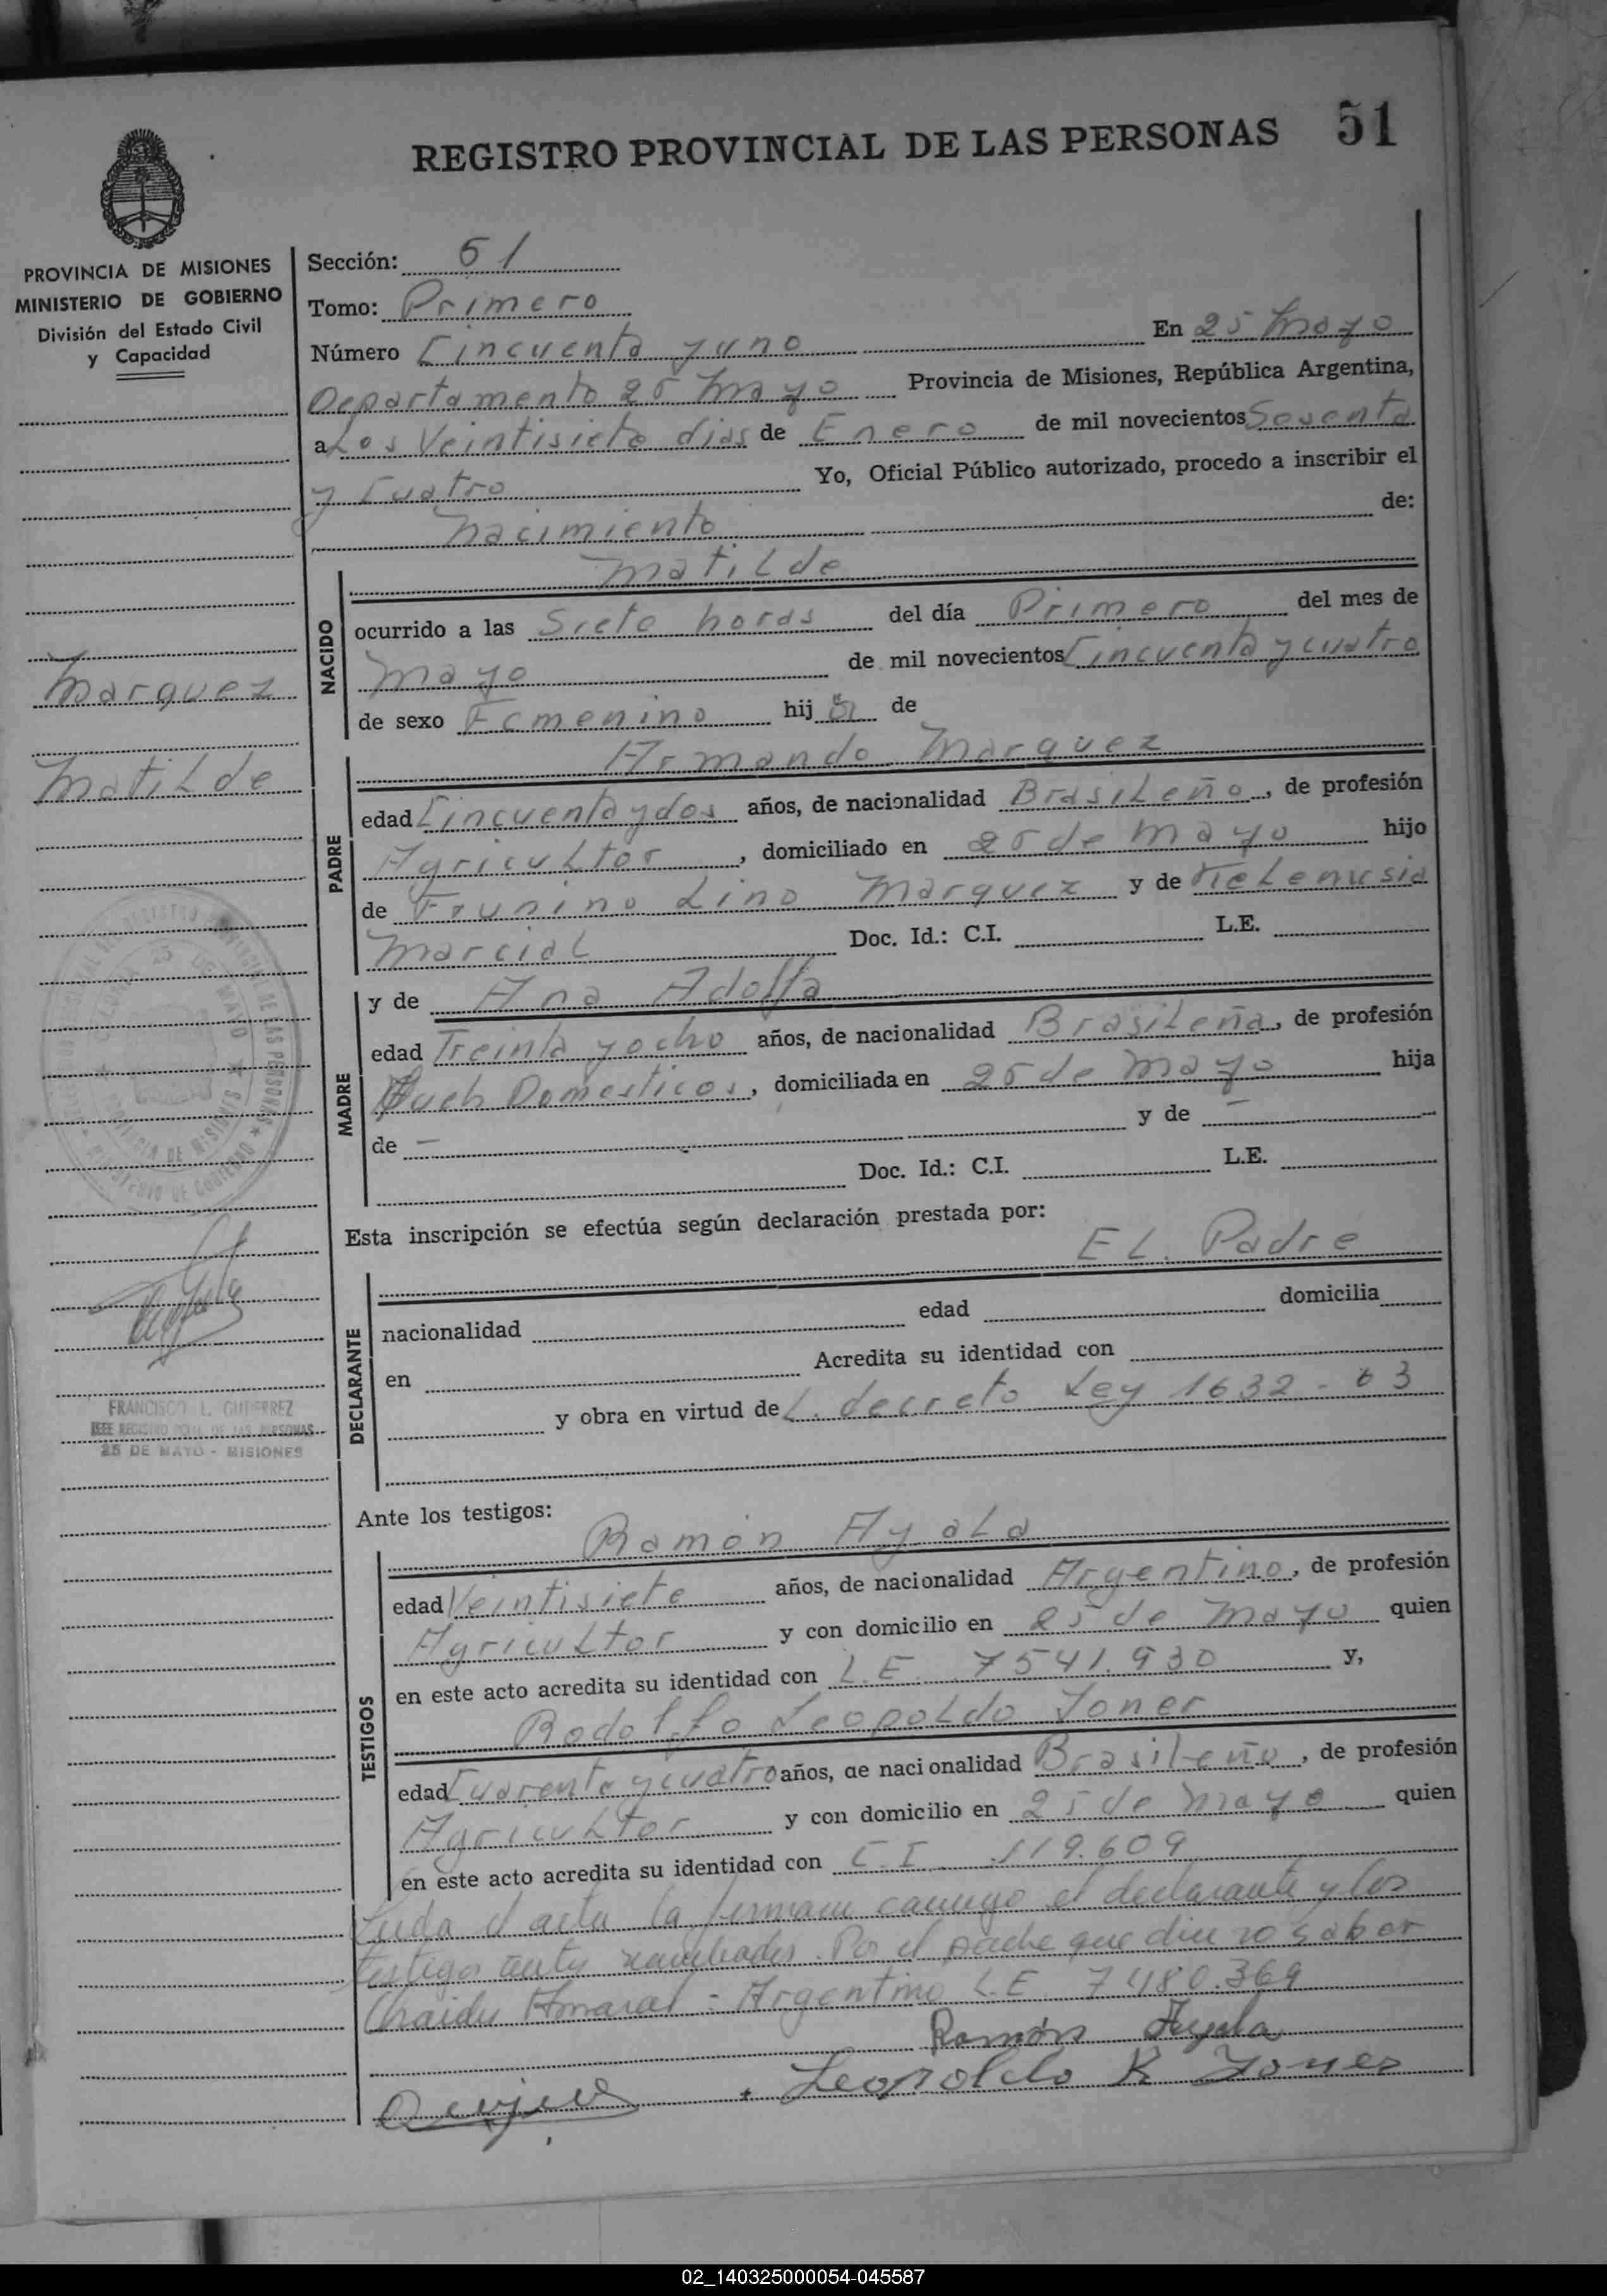 REGISTRO PROVINCIAL DE LAS PERSONAS 51
PROVINCIA DE MISIONES
MINISTERIO DE GOBIERNO
División del Estado Civil
y Capacidad
Marquez
Matilde
FRANCISCO L. GUTIERREZ
JEFE REGISTRO PCIAL DE LAS PERSONAS
25 DE MAYO - MISIONES
Sección: 51
Tomo: Primero
Número Cincuenta y uno En 25 Mayo
Departamento 25 Mayo Provincia de Misiones, República Argentina,
a Los Veintisiete dias de Enero de mil novecientos Sesenta
y Cuatro Yo, Oficial Público autorizado, procedo a inscribir el
Nacimiento de:
Matilde
NACIDO
ocurrido a las Siete horas del día Primero del mes de
Mayo de mil novecientos Cincuenta y cuatro
de sexo Femenino hij a de
Armando Marquez
PADRE
edad Cincuenta y dos años, de nacionalidad Brasileño, de profesión
Agricultor, domiciliado en 25 de Mayo hijo
de Lino Marquez y de
Marcial Doc. Id.: C.I. L.E.
MADRE
y de Ana Adolfa
edad Treinta y ocho años, de nacionalidad Brasileña, de profesión
Domesticos, domiciliada en 25 de Mayo hija
de — y de —
Doc. Id.: C.I. L.E.
Esta inscripción se efectúa según declaración prestada por:
EL. Padre
DECLARANTE
nacionalidad edad domicilia
en Acredita su identidad con
y obra en virtud de L. decreto Ley 1632-63
Ante los testigos:
Ramón Ayala
TESTIGOS
edad Veintisiete años, de nacionalidad Argentino, de profesión
Agricultor y con domicilio en 25 de Mayo quien
en este acto acredita su identidad con L.E. 7541.930 y,
Rodolfo Leopoldo Joner
edad Cuarenta y cuatro años, de nacionalidad Brasileño, de profesión
Agricultor y con domicilio en 25 de Mayo quien
en este acto acredita su identidad con C.I. 119.609
Leida el acta la firman conmigo el declarante y los
testigos antes nombrados. Por el padre que dice no saber
Argentino L.E. 7480.369
Ramón Ayala
Leopoldo R Joner
02_140325000054-045587